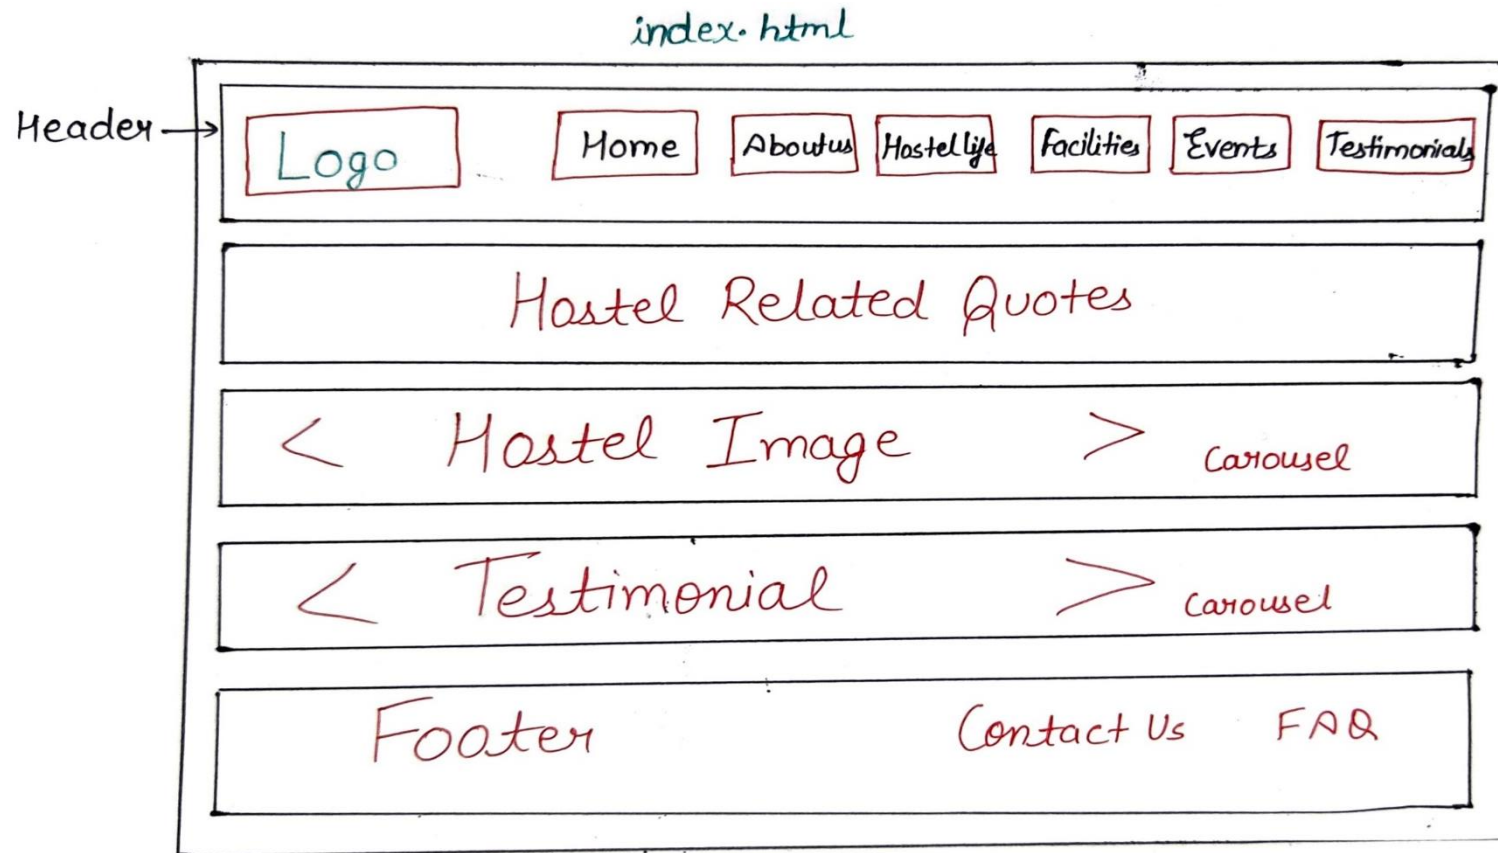 index.html
Header
Logo Home Aboutus Hostel life Facilities Events Testimonials
Hostel Related Quotes
< Hostel Image > Carousel
< Testimonial > Carousel
Footer Contact Us FAQ